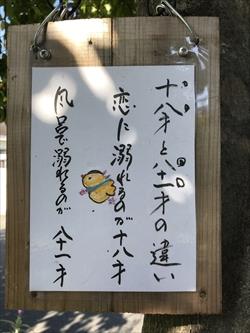 十八才と八十一才の違い
恋に溺れるのが十八才
風呂で溺れるのが八十一才